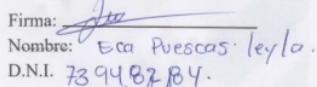 Firma:
Nombre: Eca Puescas leyla.
D.N.I. 73948284.